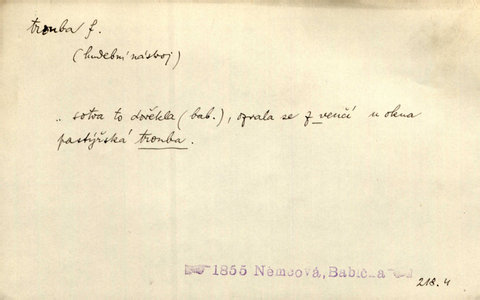 tronba f.
(hudební nástroj)
„ sotva to dořekla (bab.), ozvala se z venčí u okna
pastýřská tronba.
1855 Němcová, Babička
218.4